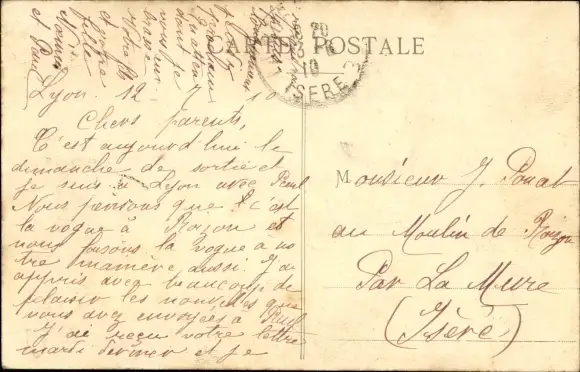 CARTE POSTALE
20
10
ISERE
Lyon 12 - 7 10
Chers parents,
C'est aujourd'hui le
dimanche de sortie et
je suis à Lyon avec Paul
Nous pensons que c'est
la vogue à Roizon et
nous faisons la vogue a no
tre manière aussi. J'ai
appris avec beaucoup de
plaisir les nouvelles que
vous avez envoyées à Paul
J'ai reçu votre lettre
mardi dernier et je
vous
votre fils
et votre
fille
et Paul
Monsieur J. Ponat
au Moulin de Roizon
Par La Mure
(Isère)